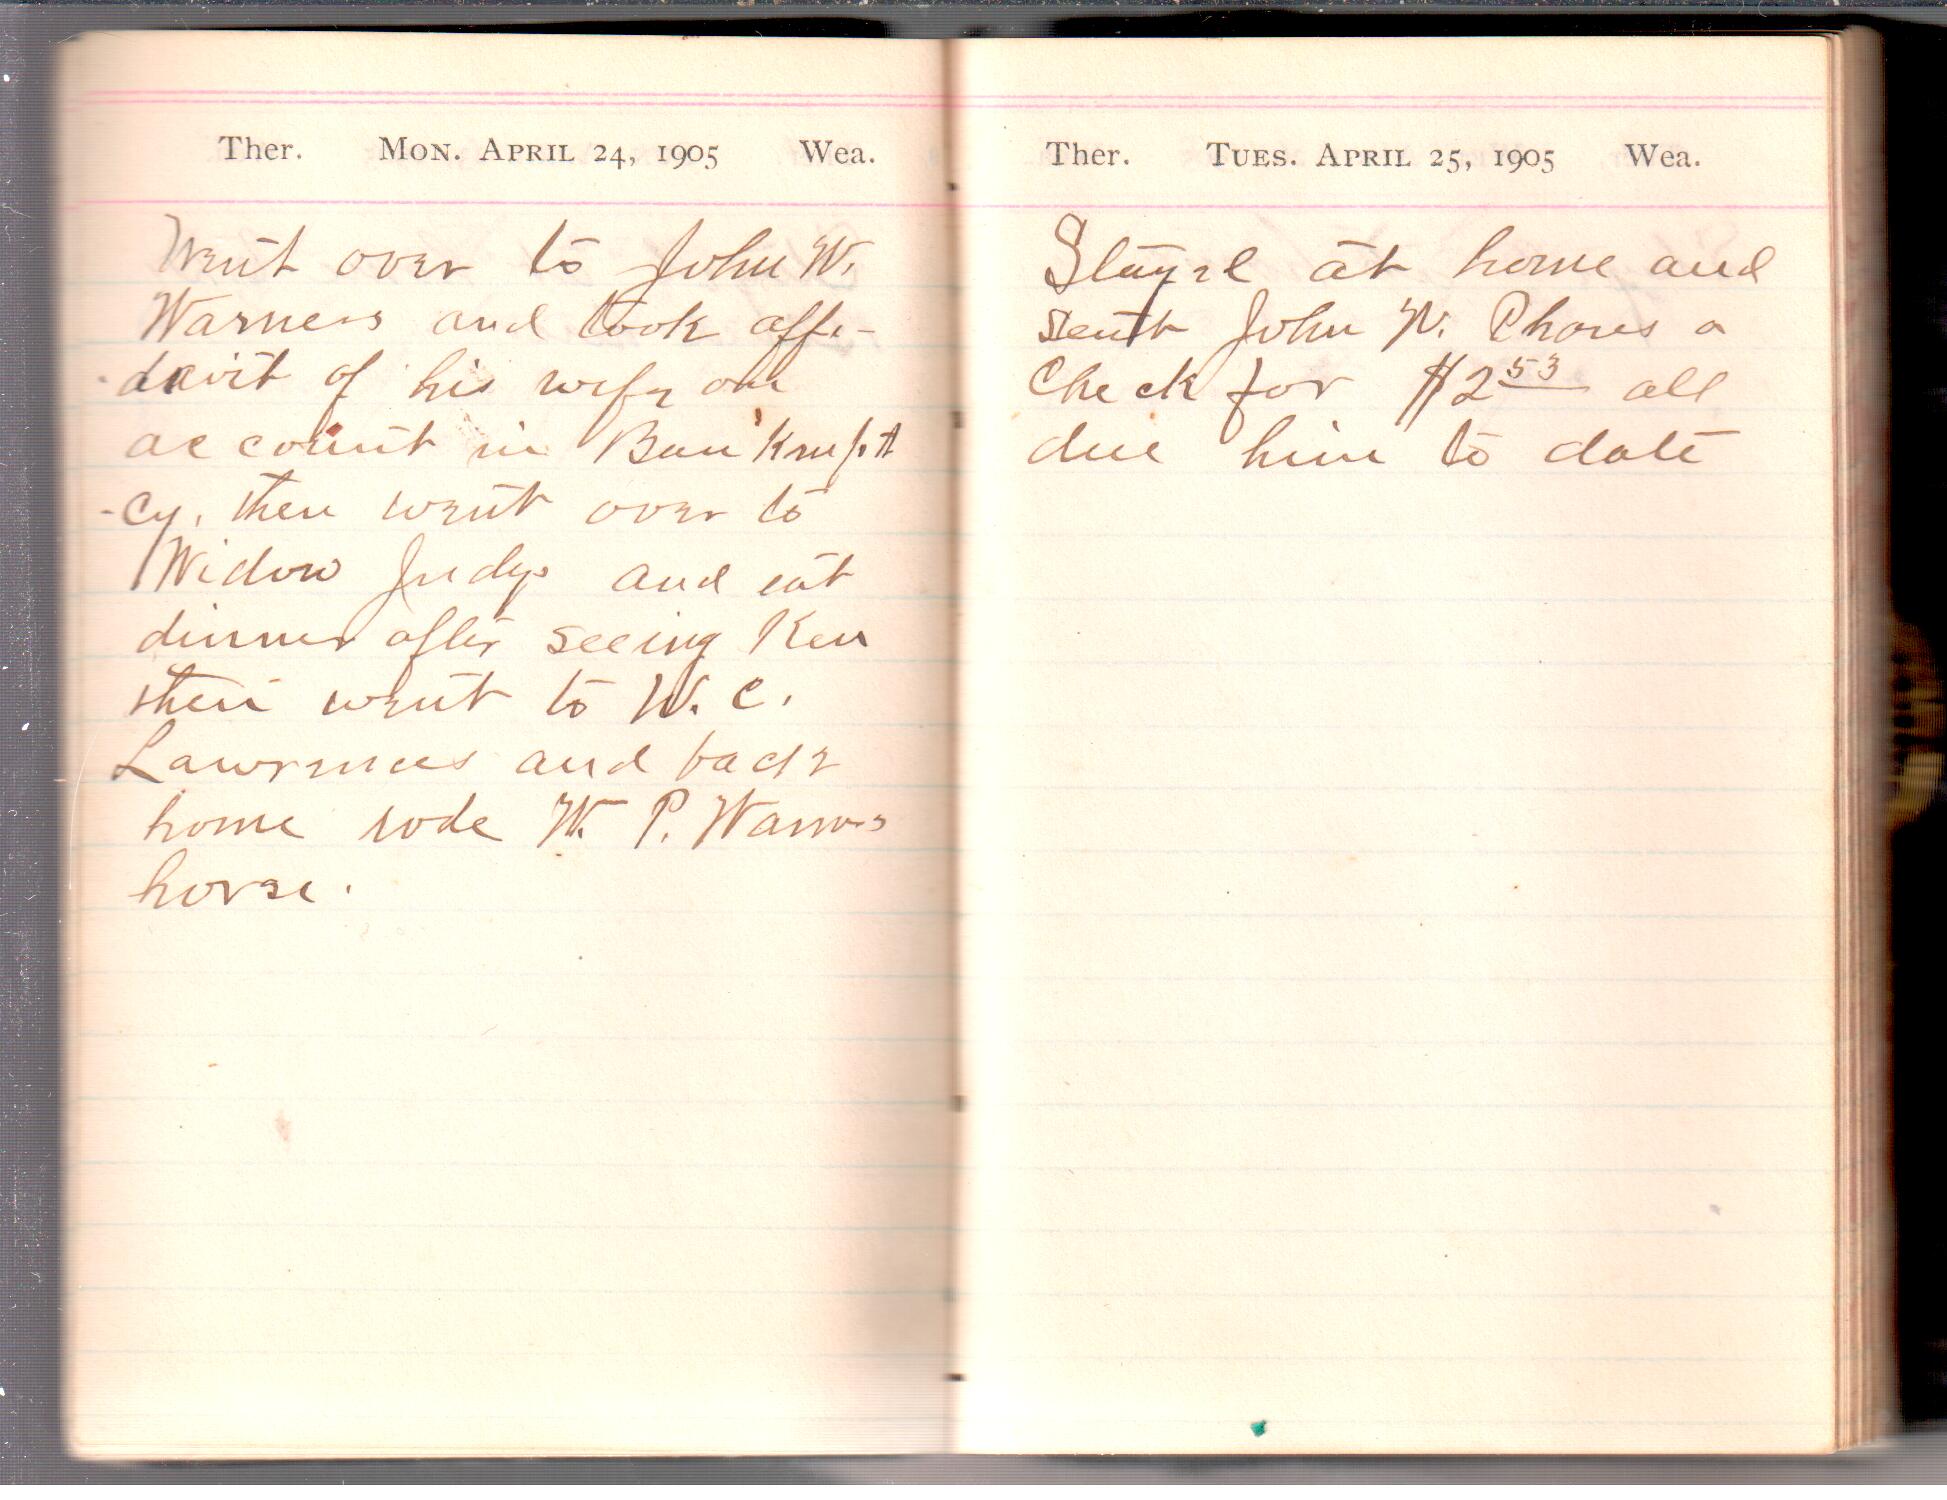 Ther. Mon. April 24, 1905 Wea.
Went over to John W.
Warners and took affi-
-davit of his wify on
account in Bankrupt
-cy, then went over to
Widow Judys and eat
dinner after seeing Ken
then went to W. C.
Lawrences and back
home rode W. P. Warners
horse.
Ther. Tues. April 25, 1905 Wea.
Stayed at home and
sent John W. Phares a
Check for $2 53 all
due him to date